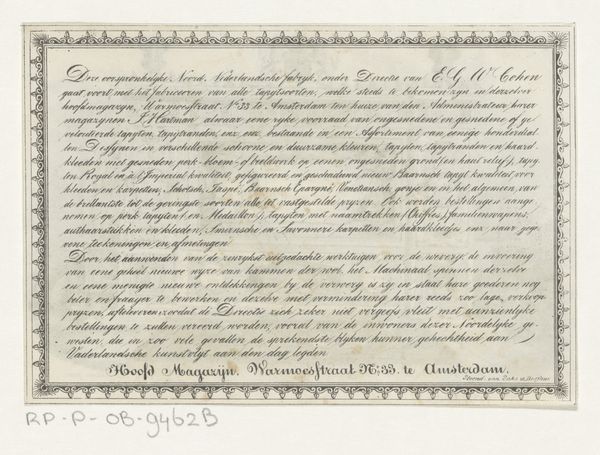 Deze oorspronkelyke, Noord-Nederlandsche fabryk, onder Directie van E. G. W. Cohen
gaat voort met het fabriceeren van alle tapytsoorten, welke steeds te bekomen zyn in derzelver
hoofdmagazyn, Warmoesstraat, No. 33 te Amsterdam ten huize van den Administrateur harer
magazynen J. Hartman alwaar eene ryke voorraad van ongesnedene en gesnedene of ge-
velouteerde tapyten, tapytranden, enz. enz. bestaande in een Assortiment van eenige honderdtal-
len Dessynen in verschillende schoone en duurzame kleuren, tapyten, tapytranden en haard-
kleeden met gesneden park-bloem- of beeldwerk op eenen ongesneden grond (en haut relief), tapy-
ten Royal en à l'Imperial kwaliteit, gefigureerd en geschaduwd nieuw Baarnsch tapyt kwaliteit voor
kleeden en karpetten; Schotsch, Jaspé, Baarnsch Epargné, Venetiaansch, gonje en in het algemeen, van
de brillantste tot de geringste soorten alle tot vastgestelde pryzen. Ook worden bestellingen aange-
nomen op park tapyten (en Medaillon), tapyten met naamtrekken (Chiffres), familiewapens,
authaarstukken en kleeden, Smirnsche en Savonnerie karpetten en haardkleedjes enz. naar gege-
vene teekeningen en afmetingen.
Door het aanwenden van de zinrykst uitgedachte werktuigen voor de wevery de invoering
van eene geheel nieuwe wyze van kammen der wol, het Machinaal spinnen derzelve
en eene menigte nieuwe ontdekkingen by de verwery is zy in staat hare goederen nog
beter en fraaijer te bewerken en dezelve met vermindering harer reeds zoo lage, verkoop-
pryzen, afteleveren zoodat de Directie zich zeker niet vergeefs vleit met aanzienlyke
bestellingen te zullen vereerd worden, vooral van de inwoners dezer Noordelyke ge-
westen, die in zoo vele gevallen de sprekendste blyken hunner gehechtheid aan
Vaderlandsche kunstvlyt aan den dag legden.
Hoofd Magazijn. Warmoesstraat No. 33. te Amsterdam.
RP-P-OB-9462B